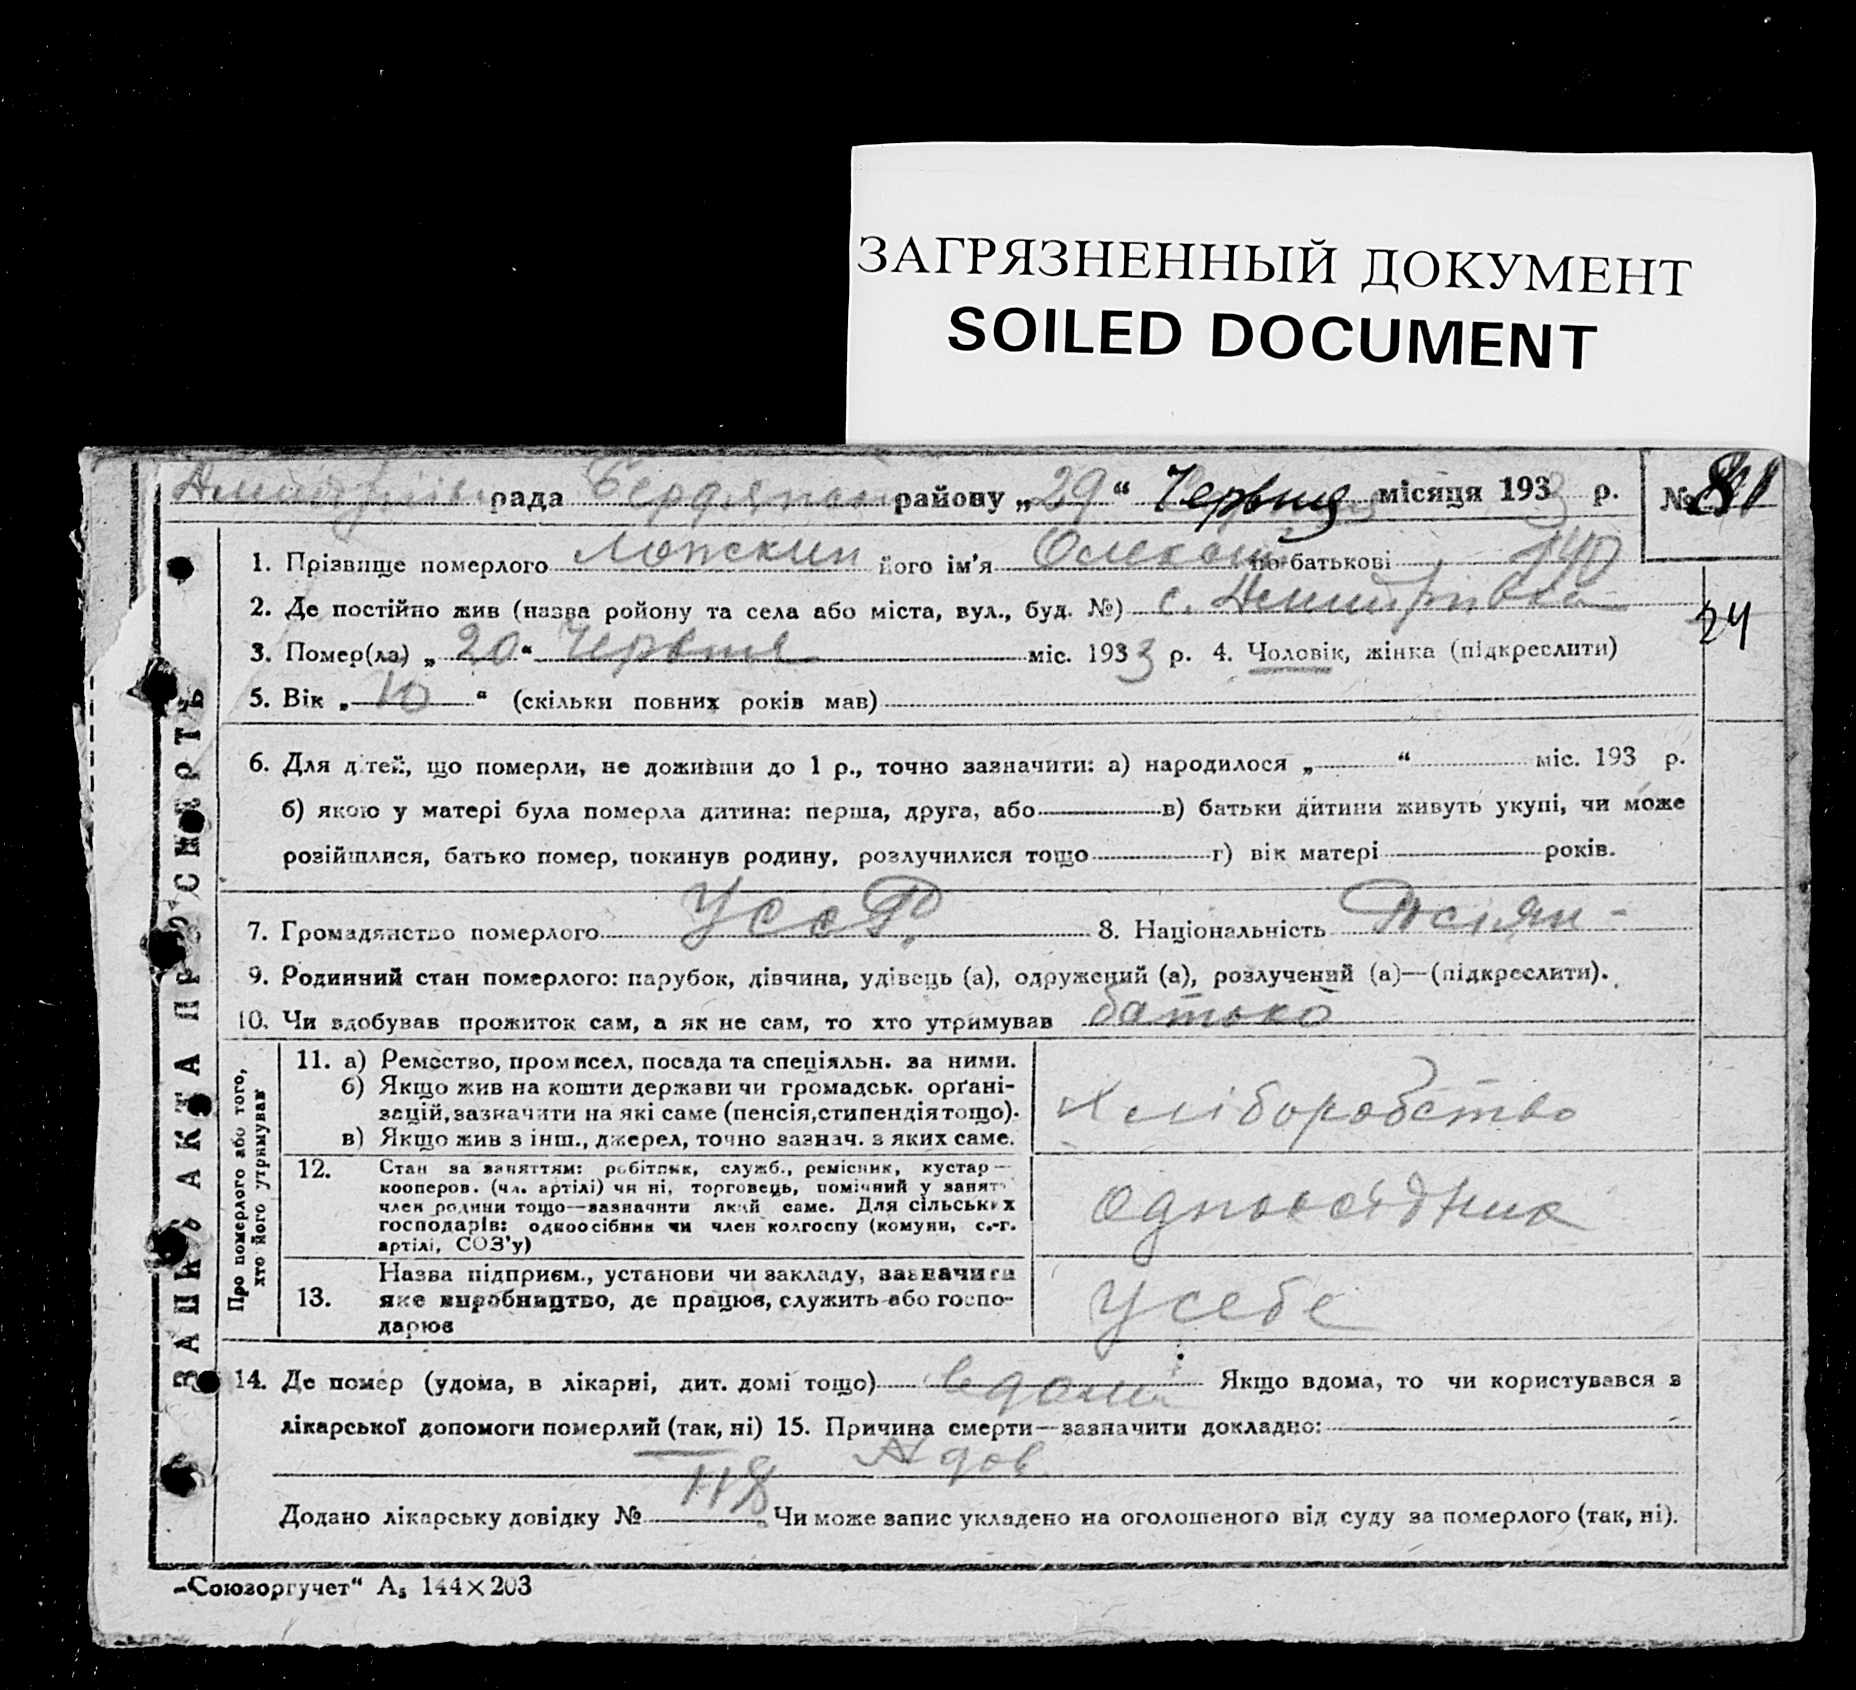 ЗАГРЯЗНЕННЫЙ ДОКУМЕНТ
SOILED DOCUMENT
рада районву „29“ Червня місяця 1933 р. №
1. Прізвище померлого його ім'я по-батькові
2. Де постійно жив (назва ройону та села або міста, вул., буд. №) с.
24
3. Помер(ла) „20“ Червня міс. 1933 р. 4. Чоловік, жінка (підкреслити)
5. Вік „10“ (скільки повних років мав)
6. Для дітей, що померли, не доживши до 1 р., точно зазначити: а) народилося „ “ міс. 193 р.
б) якою у матері була померла дитина: перша, друга, або в) батьки дитини живуть укупі, чи може
розійшлися, батько помер, покинув родину, розлучилися тощо г) вік матері років.
7. Громадянство померлого УССР. 8. Національність
9. Родинний стан померлого: парубок, дівчина, удівець (а), одружений (а), розлучений (а)—(підкреслити).
10. Чи здобував прожиток сам, а як не сам, то хто утримував батько
ЗАПИС АКТА ПРО СМЕРТЬ
Про померлого або того,
хто його утримував
11. а) Ремество, промисел, посада та спеціяльн. за ними.
б) Якщо жив на кошти держави чи громадськ. орґані-
зацій, зазначити на які саме (пенсія, стипендія тощо).
в) Якщо жив з інш., джерел, точно зазнач. з яких саме.
хліборобство
12. Стан за заняттям: робітник, служб., ремісник, кустар—
кооперов. (чл. артілі) чи ні, торговець, помічний у занят.
член родини тощо—зазначити який саме. Для сільських
господарів: одноосібник чи член колгоспу (комуни, с.-г.
артілі, СОЗ'у)
13. Назва підприєм., установи чи закладу, зазначити
яке виробництво, де працює, служить або госпо-
дарює
у себе
14. Де помер (удома, в лікарні, дит. домі тощо) вдома Якщо вдома, то чи користувався з
лікарської допомоги померлий (так, ні) 15. Причина смерти—зазначити докладно:
Додано лікарську довідку № 118 Чи може запис укладено на оголошеного від суду за померлого (так, ні).
„Союзоргучет“ А₅ 144×203